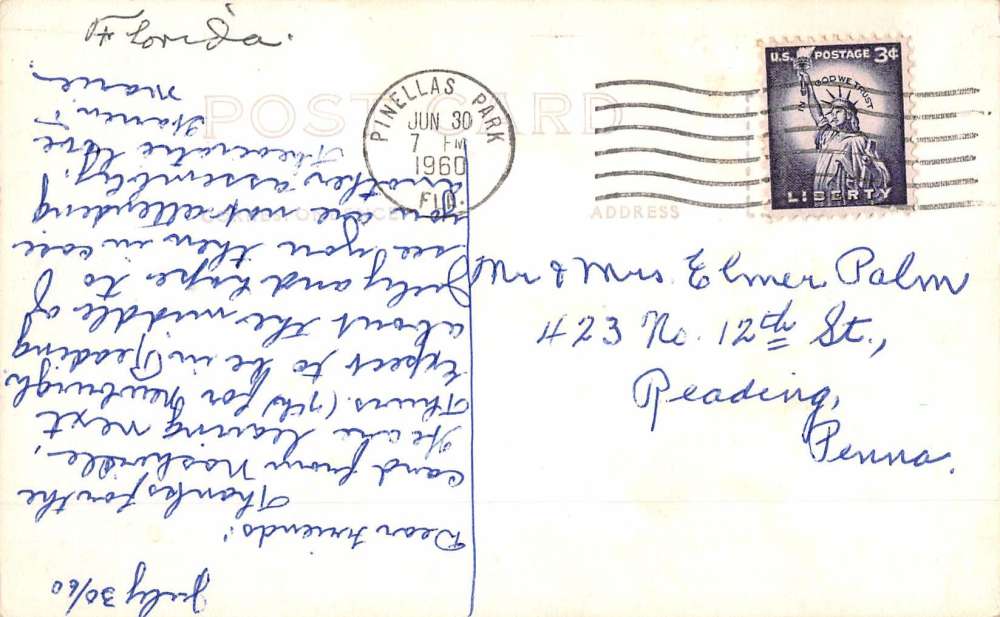 Florida.
POST CARD
PINELLAS PARK
JUN 30
7 PM
1960
FLA.
U.S. POSTAGE 3¢
IN GOD WE TRUST
LIBERTY
ADDRESS
Mr & Mrs. Elmer Palm
423 No. 12th St.,
Reading,
Penna.
July 30/60
Dear Friends:
Thanks for the
card from Nashville,
We are leaving next
Thurs. (7th) for Newburgh
Expect to be in Reading
about the middle of
July and hope to
see you then in case
you are not attending
another assembly.
Theocratic love
Warren &
Marie.